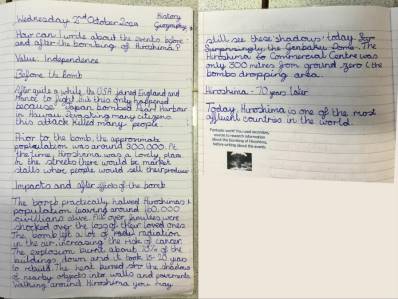 Wednesday 2nd October 2024
History
Geography
How can I write about the events before
and after the bombing of Hiroshima?
Value: Independence
Before the bomb
After quite a while, the USA joined England and
France to fight but this only happened
because Japan bombed Pearl Harbour
in Hawaii devastating many citizens
this attack killed many people.
Prior to the bomb, the approximate
population was around 300,000. At
the time, Hiroshima was a lovely place
in the streets there would be market
stalls where people would sell their produce
Impacts and after effects of the bomb
The bomb practically halved Hiroshima's
population leaving around 160,000
civillians alive. All over families were
shocked over the loss of their loved ones.
The bomb let a lot of radiation
in the air increasing the risk of cancer.
The explosion burnt about 75% of the
buildings down and it took 15-20 years
to rebuild. The heat burned into the shadows
of nearby objects into walls and pavements
walking around Hiroshima you may
still see these shadows today.
Surprisingly the Genbaku Dome. The
Hiroshima to Commercial Centre was
only 300 metres from ground zero (the
bombs dropping area.
Hiroshima - 70 years later
Today, Hiroshima is one of the most
affluent countries in the world.
Fantastic work! You used secondary
sources to research information
about the bombing of Hiroshima,
before writing about the events.